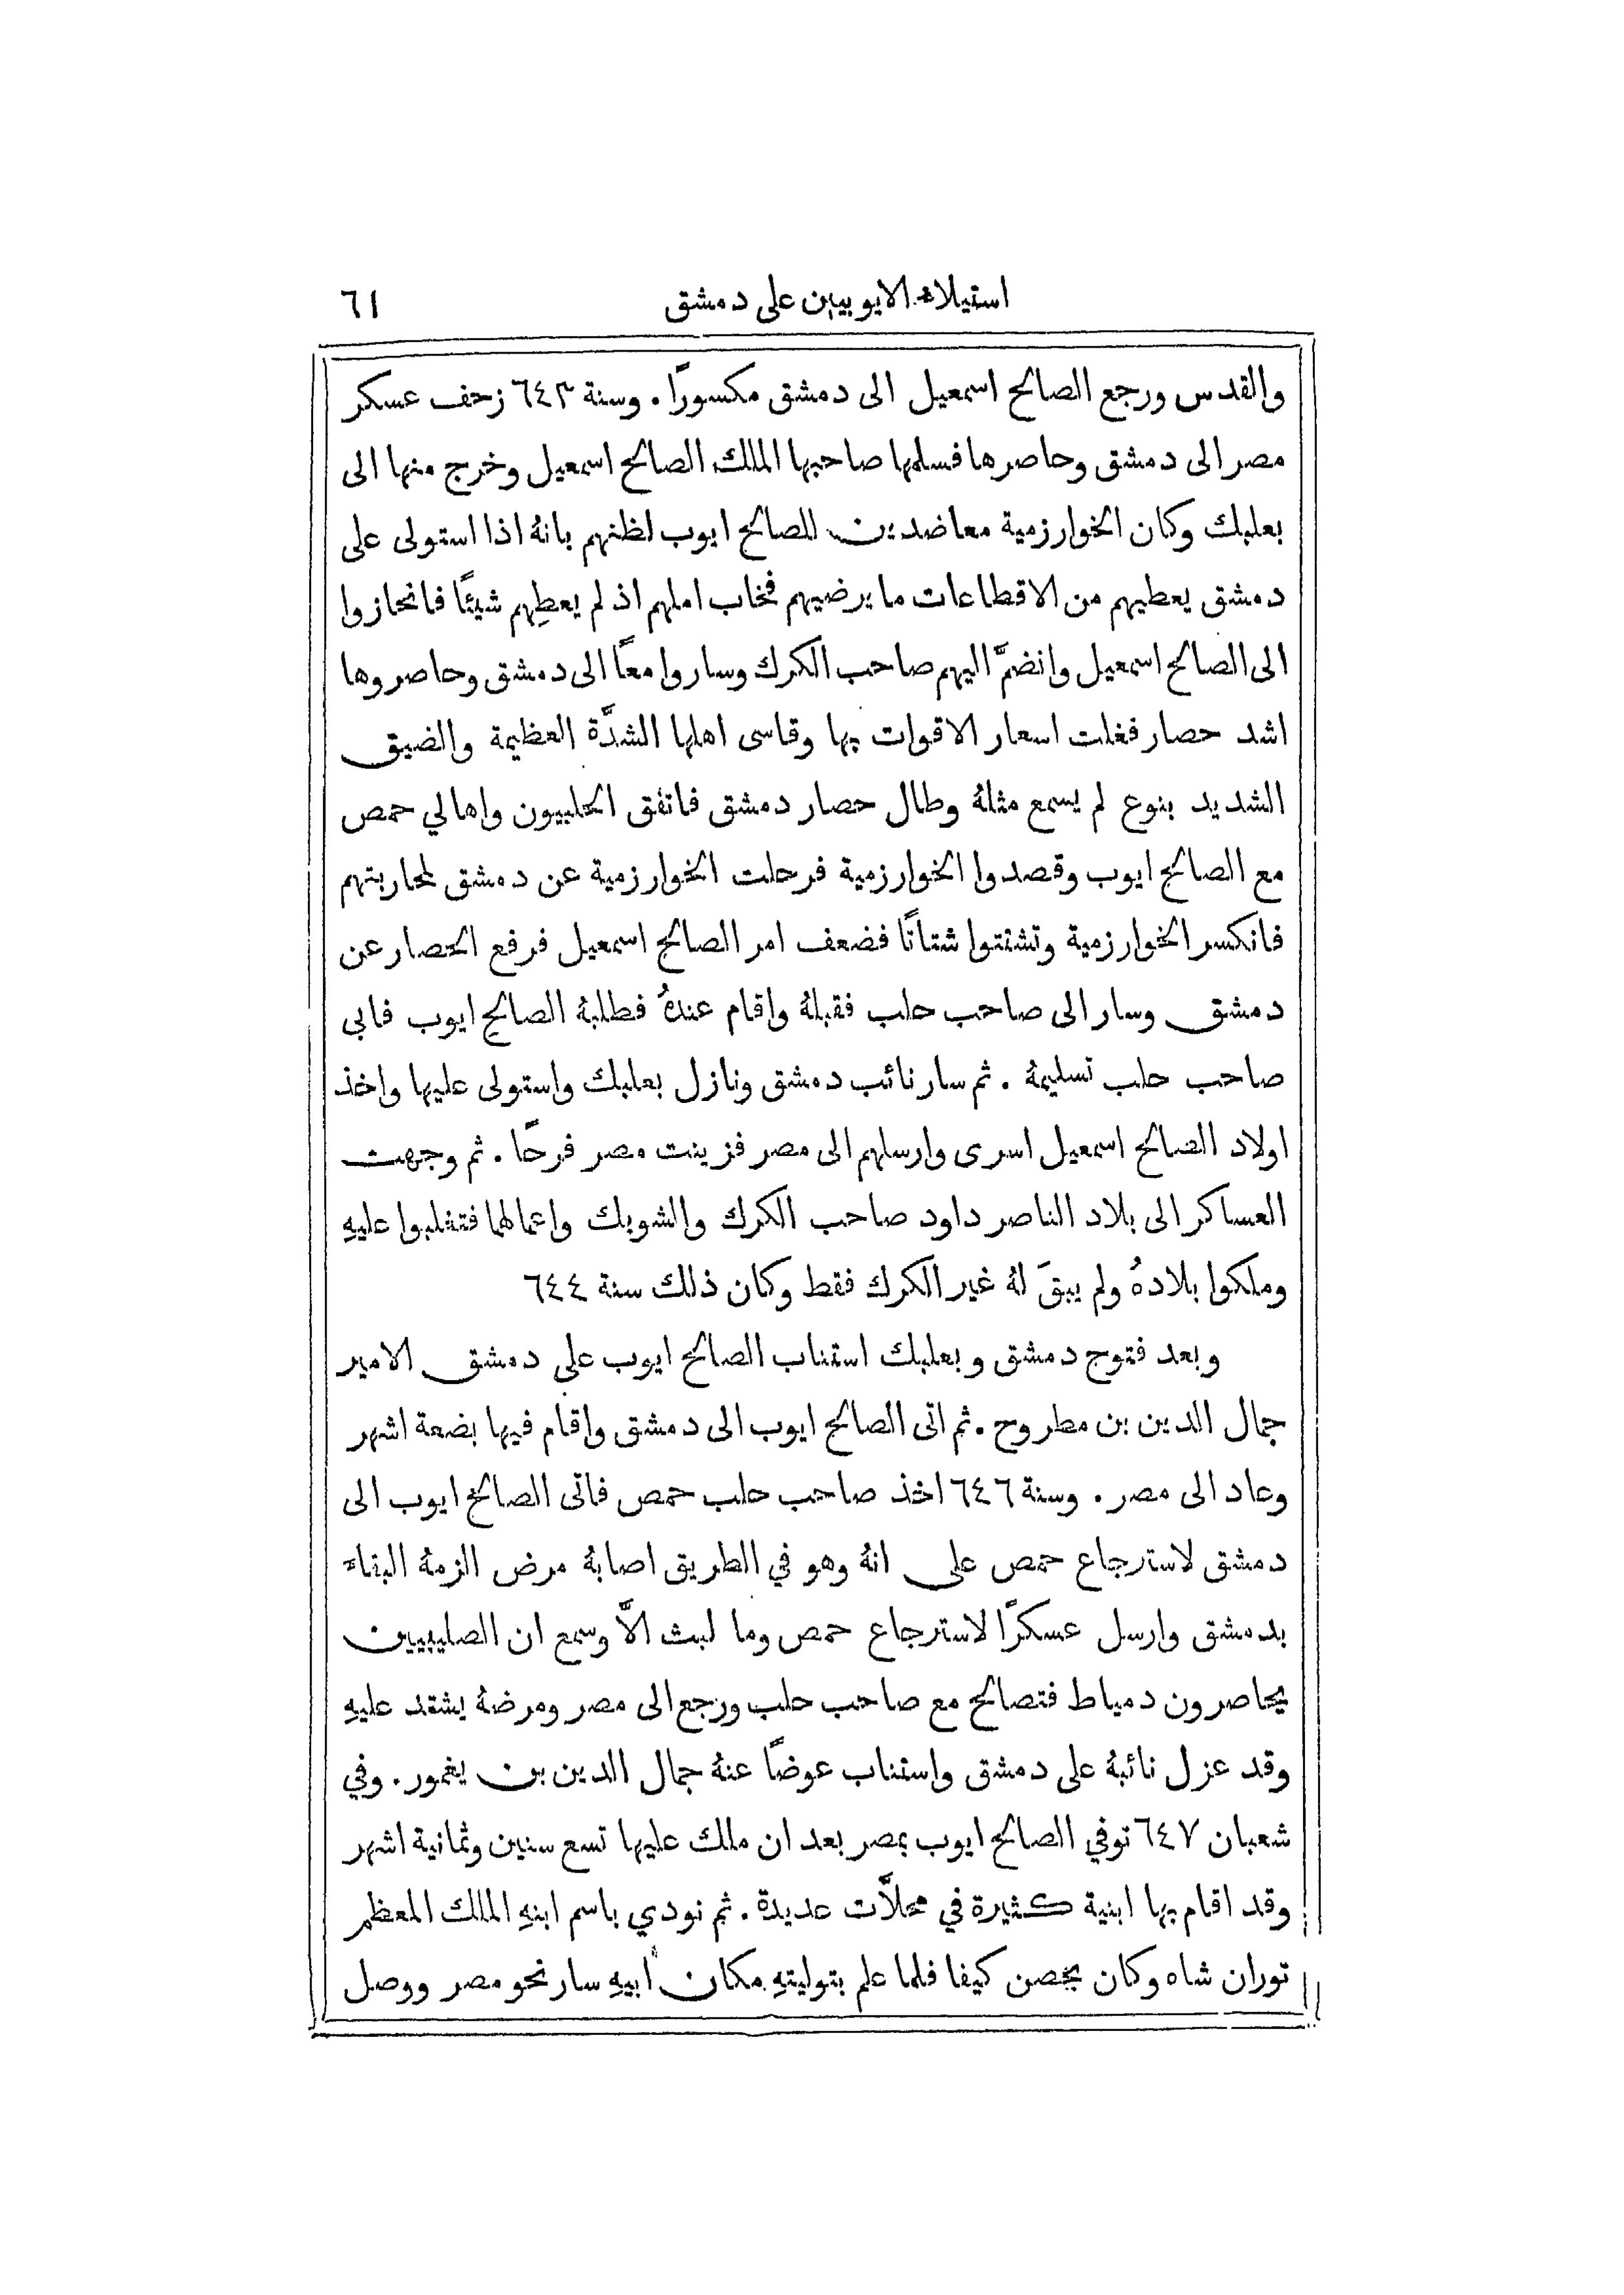 استيلاء الايوبيين على دمشق ٦١
والقدس ورجع الصالح اسمعيل الى دمشق مكسورًا. وسنة ٦٤٣ زحف عسكر
مصر الى دمشق وحاصرها فسلمها صاحبها الملك الصالح اسمعيل وخرج منها الى
بعلبك وكان الخوارزمية معاضدين للصالح ايوب لظنهم بانهُ اذا استولى على
دمشق يعطيهم من الاقطاعات ما يرضيهم فخاب املهم اذ لم يعطِهم شيئًا فانحازوا
الى الصالح اسمعيل وانضمَّ اليهم صاحب الكرك وساروا معًا الى دمشق وحاصروها
اشد حصار فغلت اسعار الاقوات بها وقاسى اهلها الشدَّة العظيمة والضيق
الشديد بنوع لم يسمع مثلهُ وطال حصار دمشق فاتفق الحلبيون واهالي حمص
مع الصالح ايوب وقصدوا الخوارزمية فرحلت الخوارزمية عن دمشق لمحاربتهم
فانكسر الخوارزمية وتشتتوا شتاتًا فضعف امر الصالح اسمعيل فرفع الحصار عن
دمشق وسار الى صاحب حلب فقبلهُ واقام عندهُ فطلبهُ الصالح ايوب فابى
صاحب حلب تسليمهُ. ثم سار نائب دمشق ونازل بعلبك واستولى عليها واخذ
اولاد الصالح اسمعيل اسرى وارسلهم الى مصر فزينت مصر فرحًا. ثم وجهت
العساكر الى بلاد الناصر داود صاحب الكرك والشوبك واعمالها فتغلبوا عليهِ
وملكوا بلادهُ ولم يبقَ لهُ غير الكرك فقط وكان ذلك سنة ٦٤٤
وبعد فتوح دمشق وبعلبك استناب الصالح ايوب على دمشق الامير
جمال الدين بن مطروح. ثم اتى الصالح ايوب الى دمشق واقام فيها بضعة اشهر
وعاد الى مصر. وسنة ٦٤٦ اخذ صاحب حلب حمص فاتى الصالح ايوب الى
دمشق لاسترجاع حمص على انهُ وهو في الطريق اصابهُ مرض الزمهُ البقاء
بدمشق وارسل عسكرًا لاسترجاع حمص وما لبث الاَّ وسمع ان الصليبيين
يحاصرون دمياط فتصالح مع صاحب حلب ورجع الى مصر ومرضهُ يشتد عليهِ
وقد عزل نائبهُ على دمشق واستناب عوضًا عنهُ جمال الدين بن يغمور. وفي
شعبان ٦٤٧ توفي الصالح ايوب بمصر بعد ان ملك عليها تسع سنين وثمانية اشهر
وقد اقام بها ابنية كثيرة في محلاَّت عديدة. ثم نودي باسم ابنهِ الملك المعظم
توران شاه وكان بحصن كيفا فلما علم بتوليتهِ مكان ابيهِ سار نحو مصر ووصل